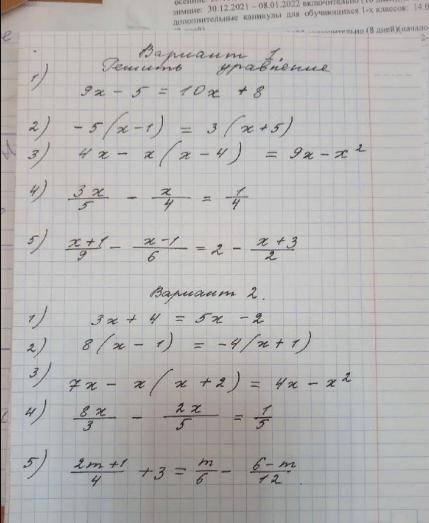 зимние: 30.12.2021 – 08.01.2022 включительно
дополнительные каникулы для обучающихся 1-х классов: 14.0
Вариант 1.
Решить уравнение
1) 9x - 5 = 10x + 8
2) -5(x-1) = 3(x+5)
3) 4x - x(x-4) = 9x - x²
4) 3x/5 - x/4 = 1/4
5) x+1/9 - x-1/6 = 2 - x+3/2
Вариант 2.
1) 3x + 4 = 5x - 2
2) 8(x - 1) = -4(x+1)
3) 7x - x(x+2) = 4x - x²
4) 8x/3 - 2x/5 = 1/5
5) 2m+1/4 + 3 = m/6 - 6-m/12.